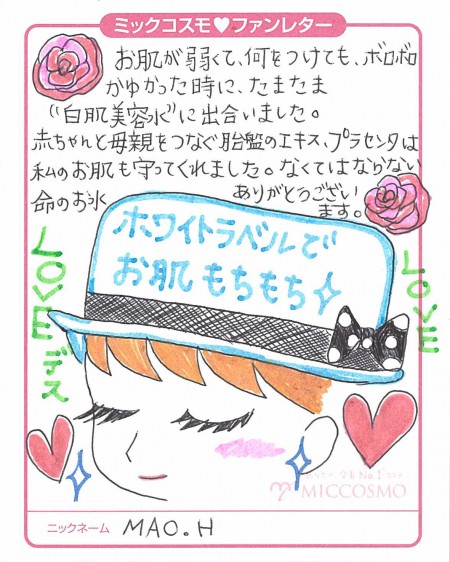 ミックコスモ♥ファンレター
お肌が弱くて、何をつけても、ボロボロ
かゆかった時に、たまたま
"白肌美容水"に出合いました。
赤ちゃんと母親をつなぐ胎盤のエキス、プラセンタは
私のお肌も守ってくれました。なくてはならない
命のお水 ありがとうござい
ます。
ホワイトラベルで
お肌もちもち
LOVEデス
LOVE
No.1
MICCOSMO
ニックネーム MAO.H